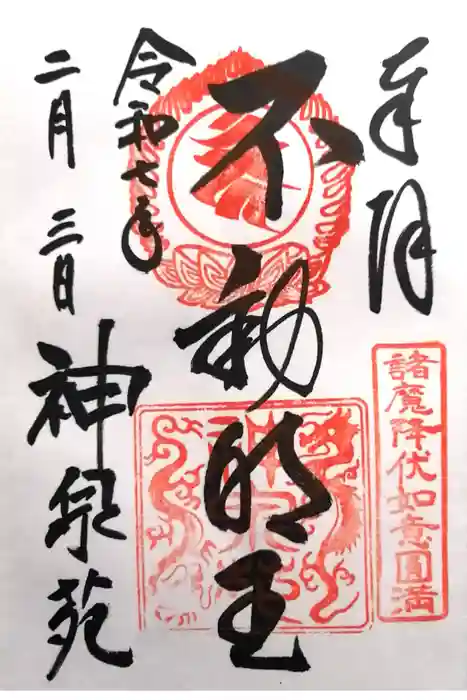 奉拝
諸魔降伏如意圓満
不動明王
令和七年
二月三日
神泉苑